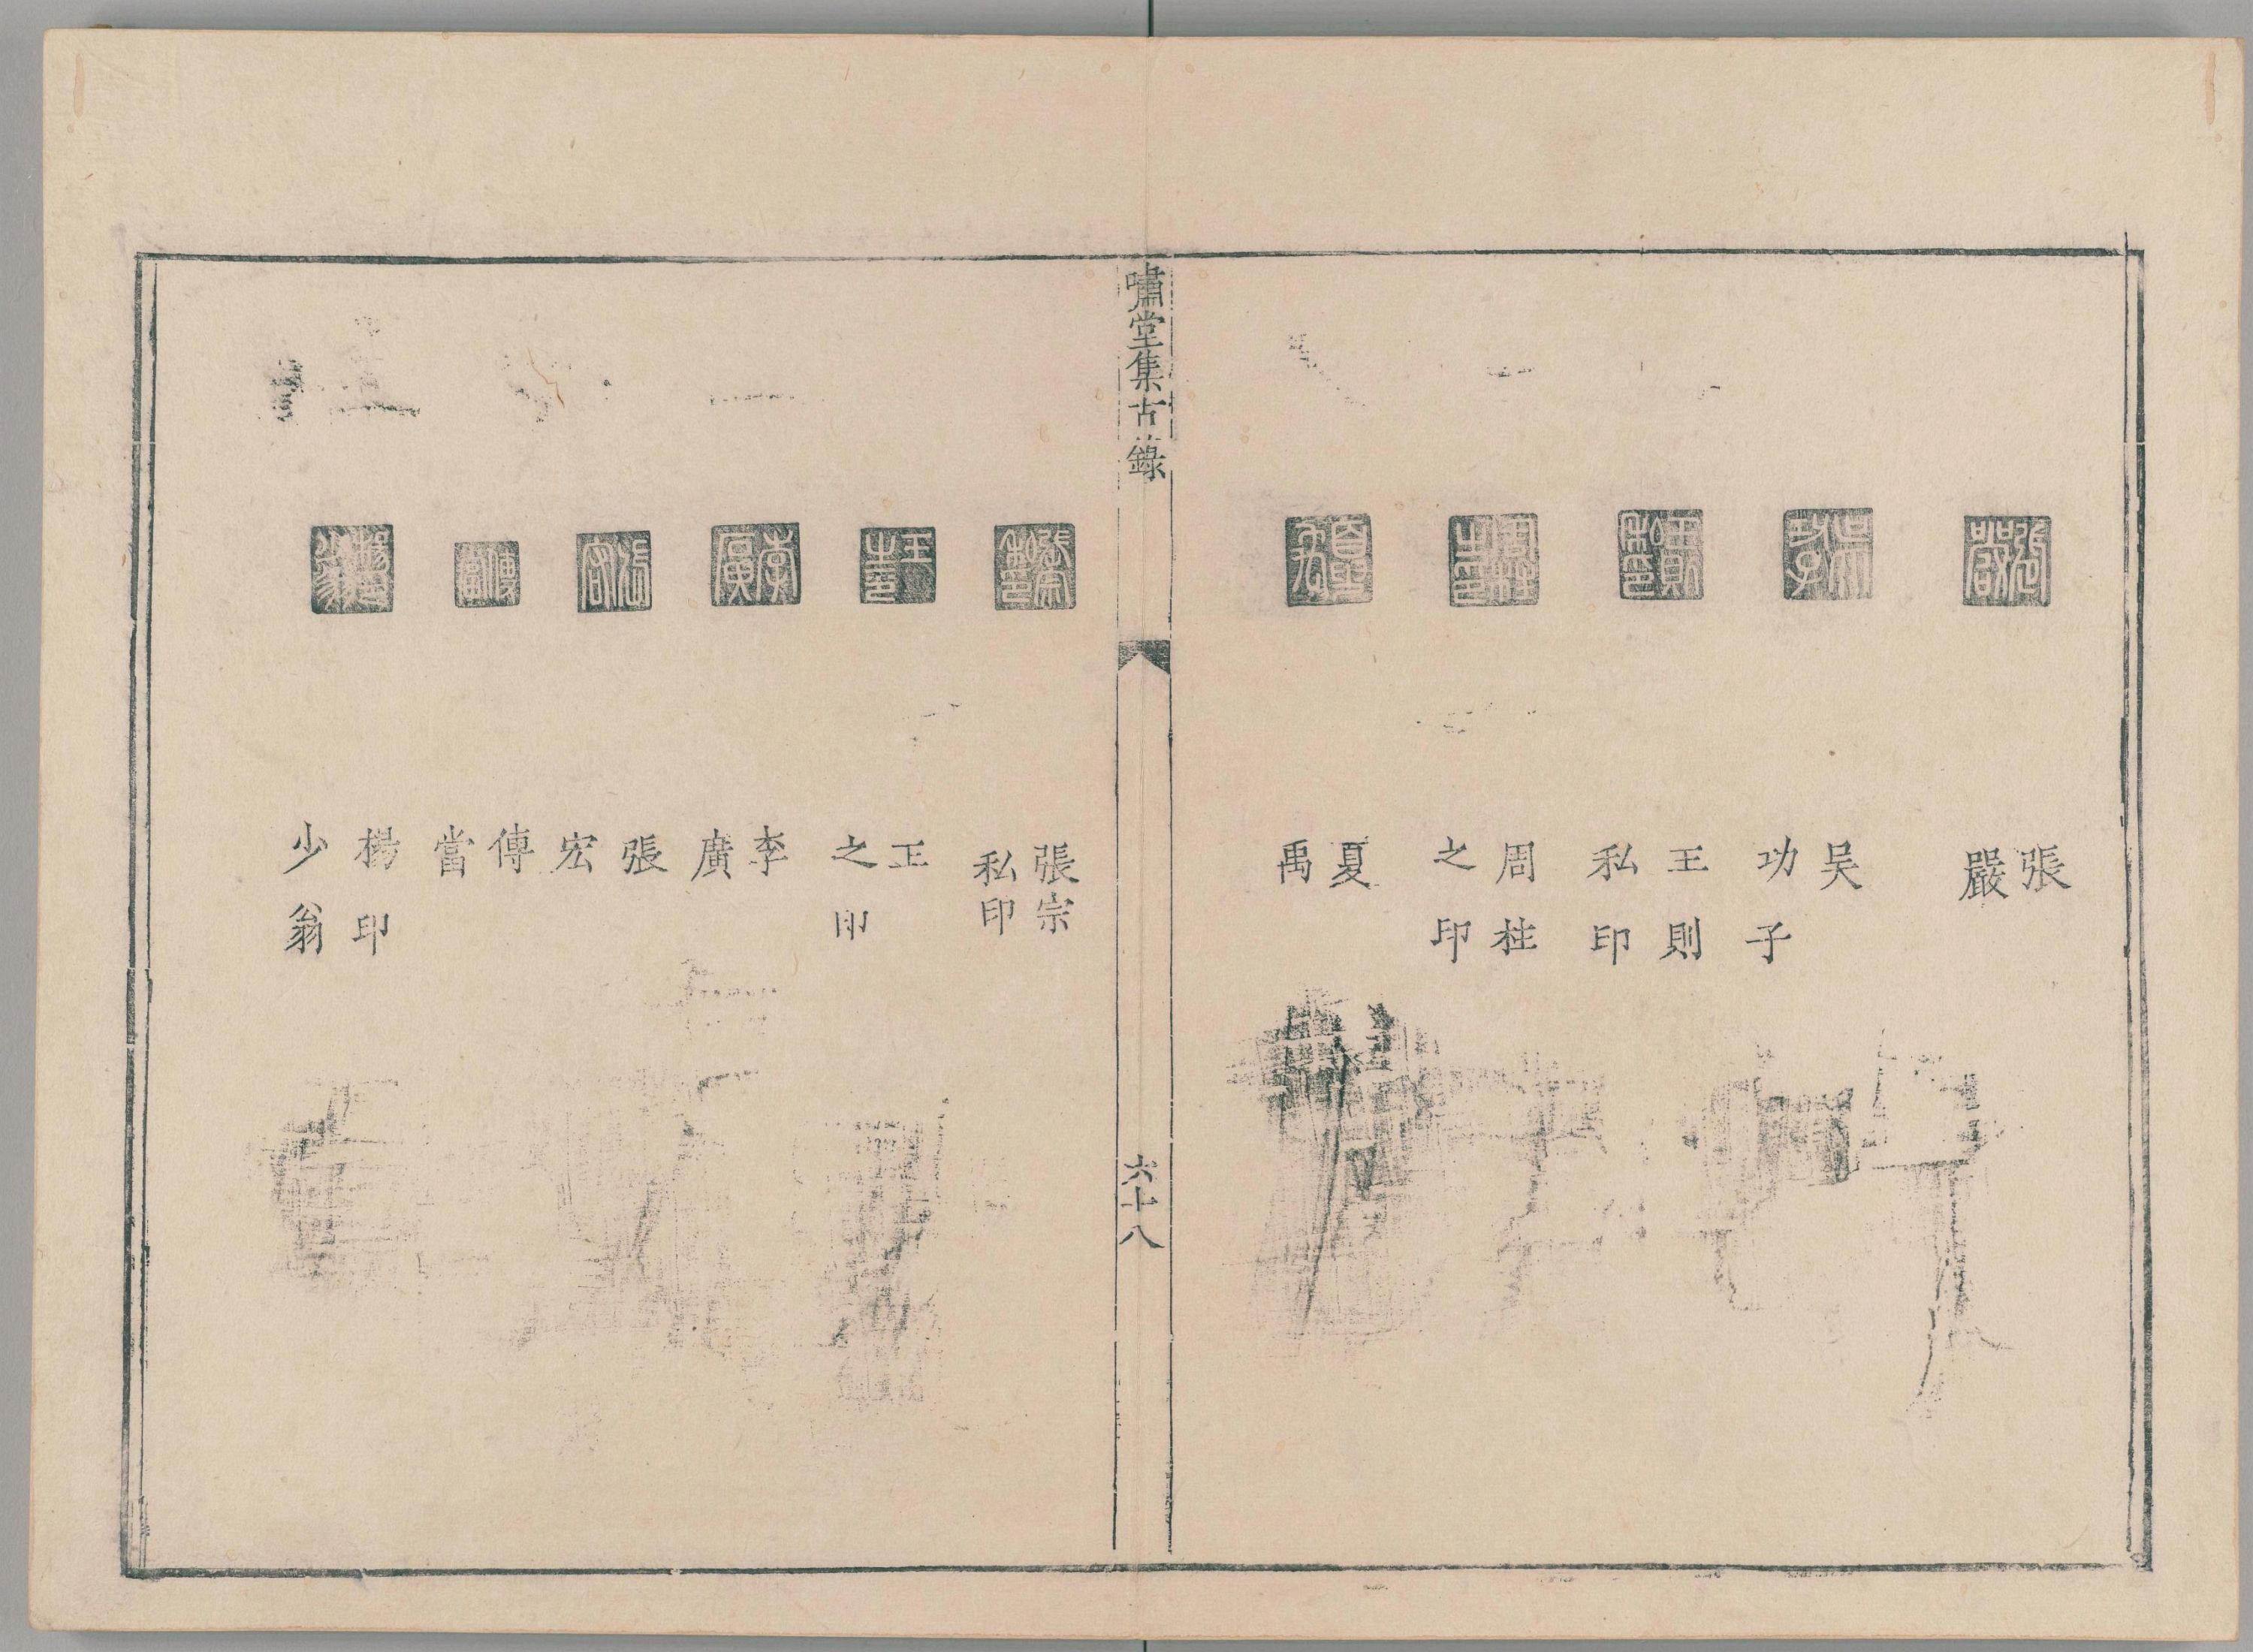 張
嚴
吴
功子
王則
私印
周柱
之印
夏
禹
嘯堂集古錄
六十八
張宗
私印
王
之印
李
廣
張
宏
傅
當
楊印
少翁